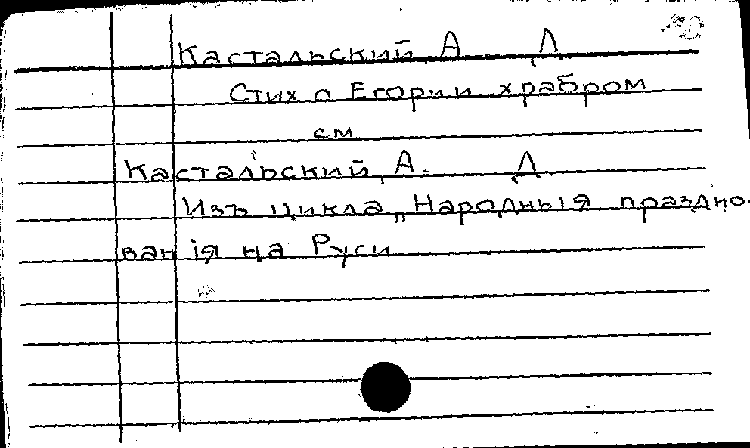 Кастальский А Д
Стих о Егории храбром
см
Кастальский, А. Д
Изъ цикла „Народныя праздно-
ванія на Руси